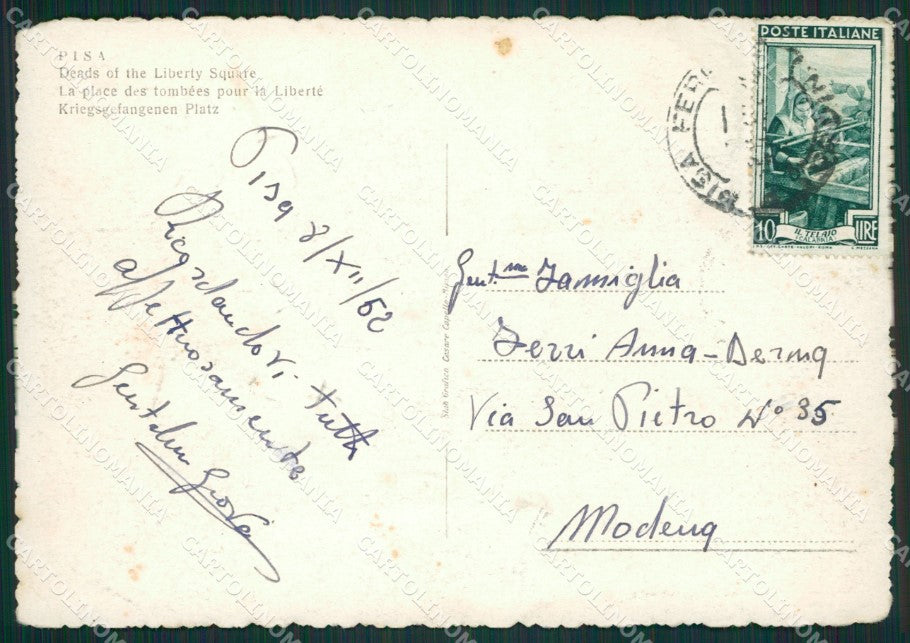 PISA
Deads of the Liberty Square
La place des tombées pour la Liberté
Kriegsgefangenen Platz
Pisa 8/XII/52
Ricordandovi tutti
affettuosamente
POSTE ITALIANE
10 LIRE
IL TELAIO
(CALABRIA)
PISA FERR
Gent.me Famiglia
Ferri Anna-Derna
Via San Pietro N° 35
Modena
CARTOLINOMANIA